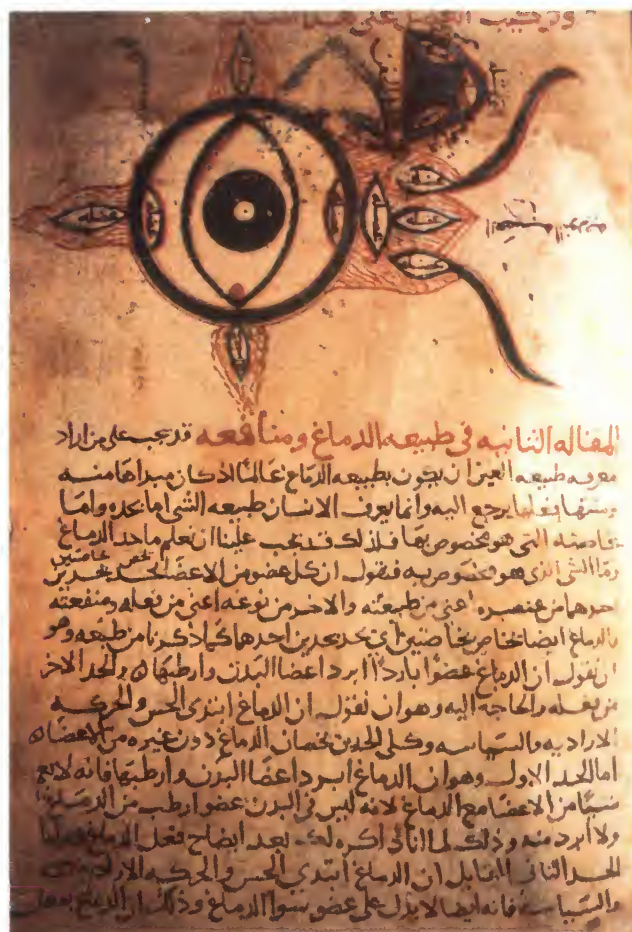 وترتيب العضل على هذا
عضله
عضله
عضله
عضله
عضله
عضله
عضله
المقاله الثانيه في طبيعه الدماغ ومنافعه قد يجب على من اراد
معرفه طبيعه العين ان يكون بطبيعه الدماغ عالمًا اذ كان مبداها منه
فعلها يرجع اليه وانما يعرف الانسان طبيعه الشي اما بحده واما
بخاصته التي هو مخصوص بها فلذلك قد يجب علينا ان نعلم ما حد الدماغ
وما الشي الذي هو مخصوص به فنقول ان كل عضو من الاعضا يحد بحدين
احدهما من عنصره اعني من طبيعته والاخر من نوعه اعني من فعله ومنفعته
والدماغ ايضا بحدين احدهما كما ذكرنا من طبيعه وهو
ان نقول ان الدماغ عضوًا باردًا ابرد اعضا البدن وارطبها والحد الاخر
من فعله والحاجه اليه وهو ان نقول ان الدماغ ابتدى الحس والحركه
الاراديه والسياسه وكلى الحدين يخصان الدماغ دون غيره من الاعضا
اما الحد الاول وهو ان الدماغ ابرد اعضا البدن وارطبها فانه لا يعم
شيًا من الاعضا مع الدماغ لانه ليس في البدن عضو ارطب من الدماغ
ولا ابرد منه وذلك لما انا ذاكره لك بعد ايضاح فعل الدماغ
الحد الثاني القايل ان الدماغ ابتدى الحس والحركه الاراديه
والسياسه فانه ايضا لا يدل على عضو سوا الدماغ وذلك ان الدماغ